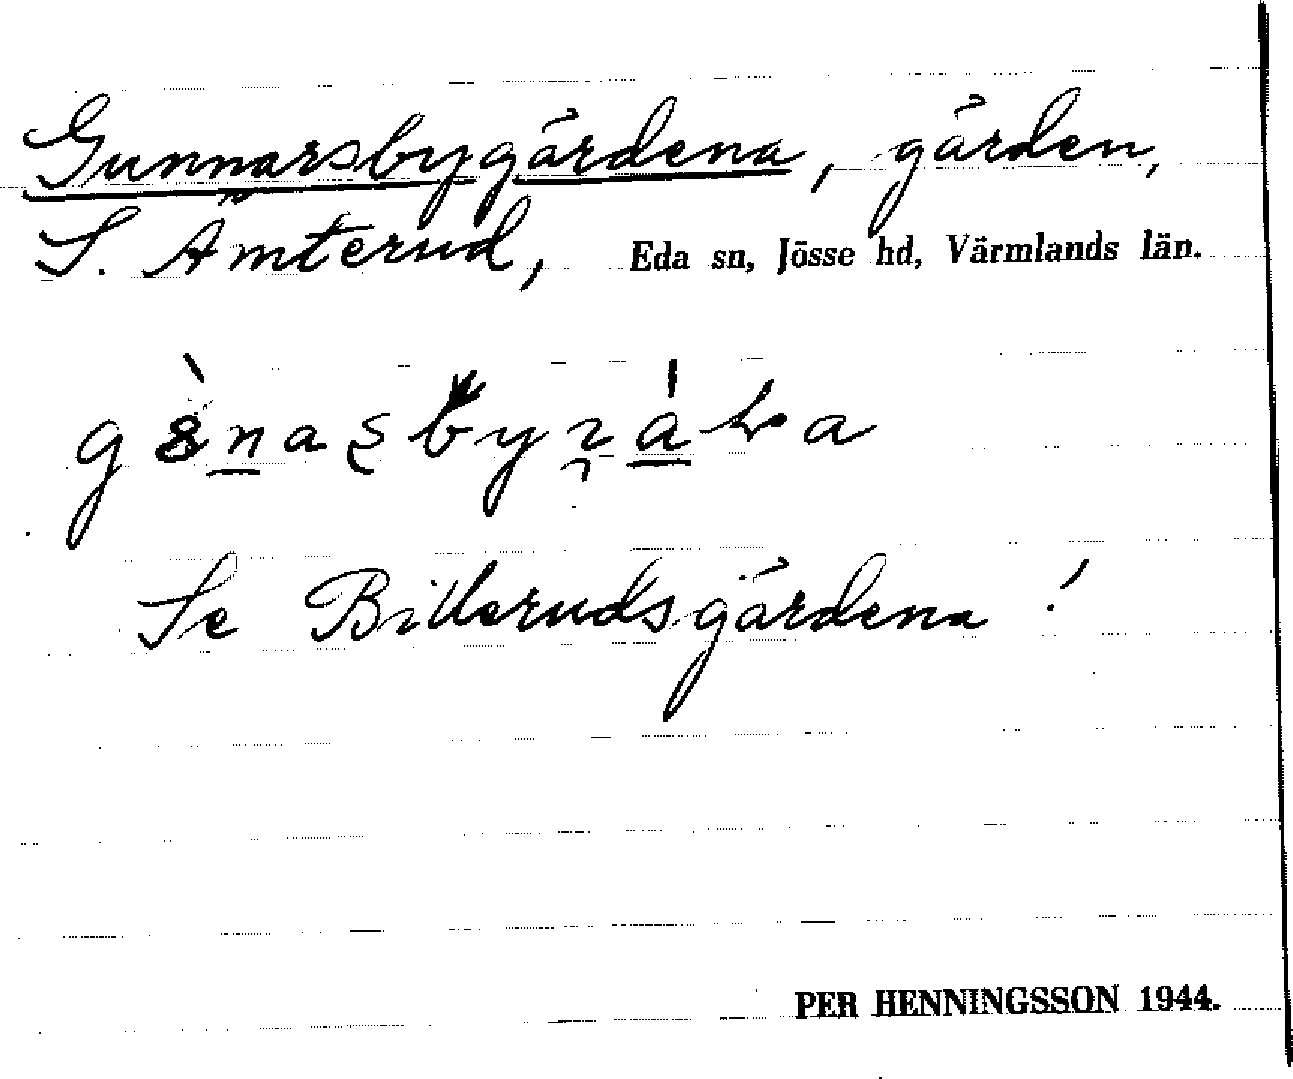 Gunnarsbygårdena, gården,
S. Åmterud, Eda sn, Jösse hd, Värmlands län.
Se Billerudsgårdena !
PER HENNINGSSON 1944.